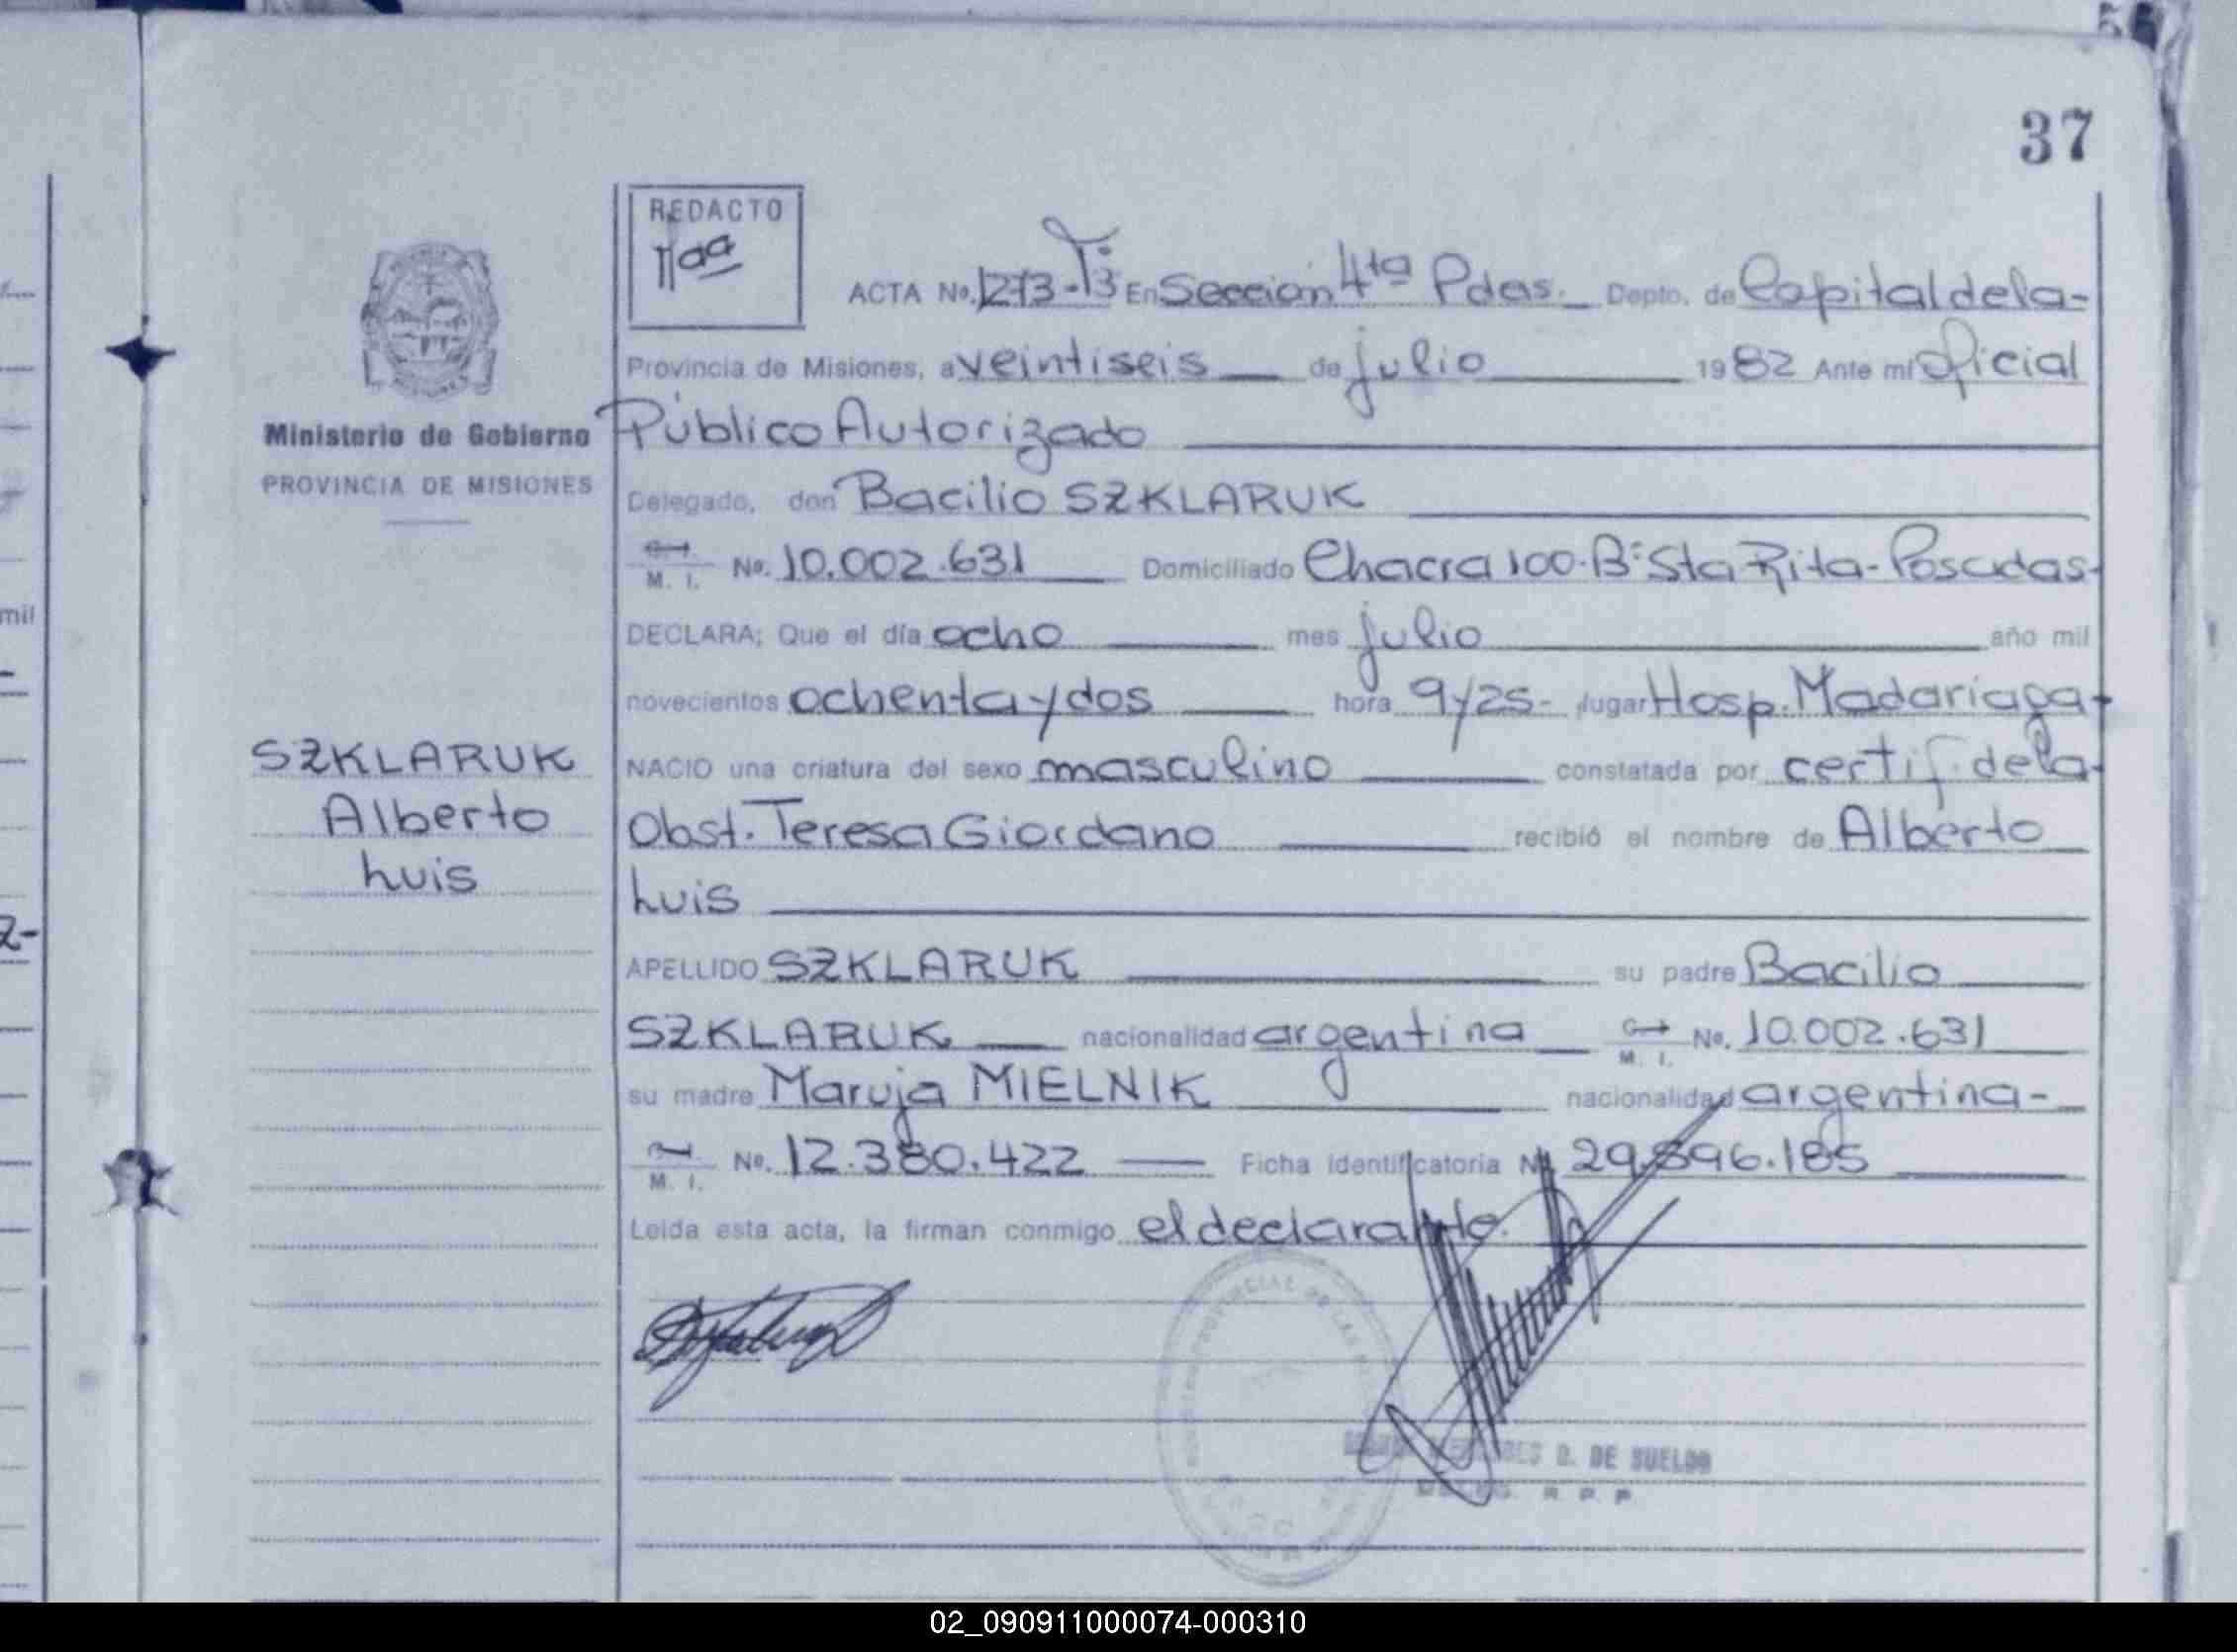 37
REDACTO
ACTA No. 1273-T3 En Sección 4ta Pdas. Depto. de Capital de la-
Provincia de Misiones, a veintiseis de julio 1982 Ante mí Oficial
Ministerio de Gobierno
Público Autorizado
PROVINCIA DE MISIONES
Delegado, don Bacilio SZKLARUK
M. I. No. 10.002.631 Domiciliado Chacra 100-B° Sta Rita-Posadas-
DECLARA; Que el día ocho mes julio año mil
novecientos ochenta y dos hora 9y25- lugar Hosp. Madariaga-
SZKLARUK
NACIO una criatura del sexo masculino constatada por certif. de la-
Alberto
Obst. Teresa Giordano recibió el nombre de Alberto
Luis
Luis
APELLIDO SZKLARUK su padre Bacilio
SZKLARUK nacionalidad argentina M. I. No. 10.002.631
su madre Maruja MIELNIK nacionalidad argentina-
M. I. No. 12.380.422 Ficha identificatoria No 29.596.185
Leída esta acta, la firman conmigo el declarante.
D. DE SUELDO
R. P. P.
mil
2-
02_090911000074-000310